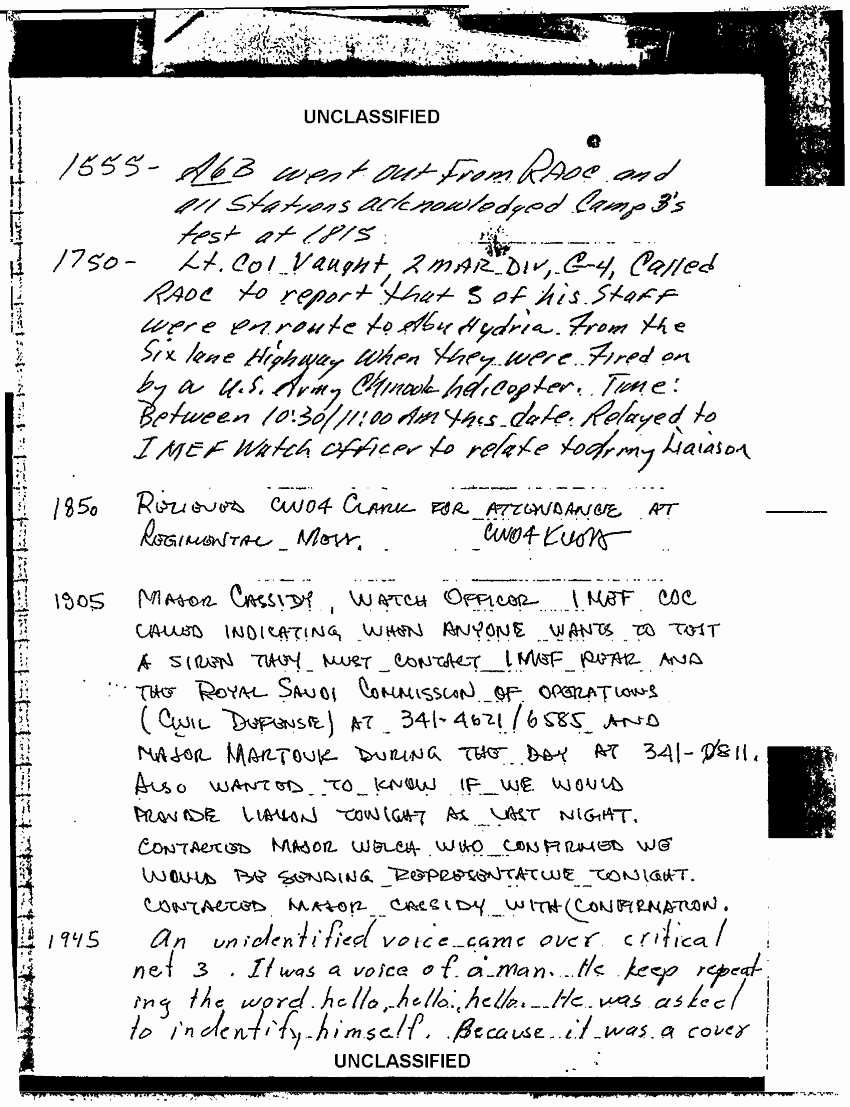 UNCLASSIFIED
1555- A6B went out From RAOC and
all Stations acknowledged Camp 3's
test at 1815
1750- Lt. Col Vaught, 2 MAR Div, G-4, Called
RAOC to report that 5 of his Staff
were enroute to Abu Hydria From the
Six lane Highway when they were Fired on
by a U.S. Army Chinook helicopter. Time:
Between 10:30/11:00 AM this date. Relayed to
I MEF Watch officer to relate to Army Liaison
1850 RELIEVED CWO4 CLARK FOR ATTENDANCE AT
REGIMENTAL MESS. CWO4
1905 MAJOR CASSIDY, WATCH OFFICER I MEF COC
CALLED INDICATING WHEN ANYONE WANTS TO TEST
A SIREN THEY MUST CONTACT I MEF REAR AND
THE ROYAL SAUDI COMMISSION OF OPERATIONS
(CIVIL DEFENSE) AT 341-4621/6585 AND
MAJOR MARTOUK DURING THE DAY AT 341-0811.
ALSO WANTED TO KNOW IF WE WOULD
PROVIDE LIAISON TONIGHT AS LAST NIGHT.
CONTACTED MAJOR WELCH WHO CONFIRMED WE
WOULD BE SENDING REPRESENTATIVE TONIGHT.
CONTACTED MAJOR CASSIDY WITH CONFIRMATION.
1945 An unidentified voice came over critical
net 3. It was a voice of a man. He keep repeat
ing the word hello, hello, hello. He was asked
to indentify himself. Because it was a cover
UNCLASSIFIED